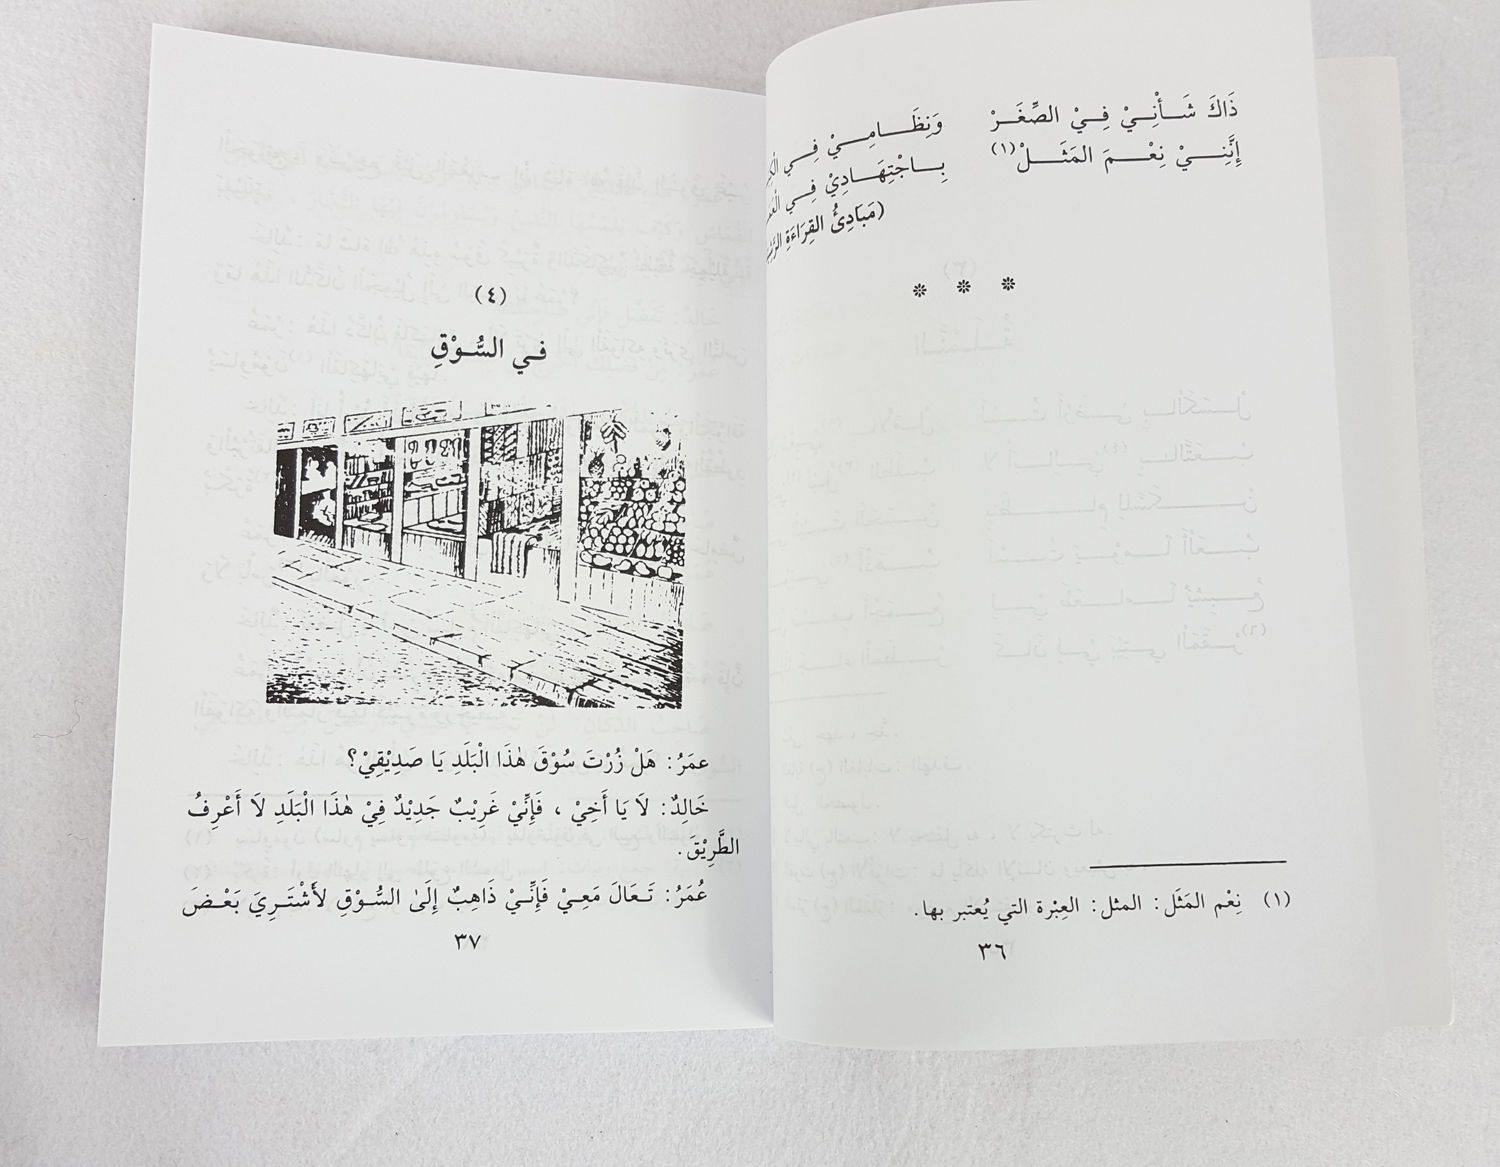 ذَاكَ شَـأْنِـيْ فِـيْ الصِّغَـرْ وَنِظَـامِـيْ فِـي
إِنَّنِـيْ نِعْـمَ المَثَـلْ (١) بِـاجْتِهَـادِيْ فِـي
(مَبَادِئُ القِرَاءَةِ
* * *
(١) نِعْم المَثَل: المثل: العِبْرة التي يُعتبر بها.
٣٦
(٤)
فـي السُّـوْقِ
عمَرُ: هَلْ زُرْتَ سُوْقَ هٰذَا الْبَلَدِ يَا صَدِيْقِيْ؟
خَالِدٌ: لَا يَا أَخِيْ ، فَإِنِّيْ غَرِيْبٌ جَدِيْدٌ فِيْ هٰذَا الْبَلَدِ لَا أَعْرِفُ
الطَّرِيْقَ.
عُمَرُ: تَـعَالَ مَعِـيْ فَإِنِّـيْ ذَاهِبٌ إِلَىٰ السُّـوْقِ لأَشْتَـرِيَ بَعْـضَ
٣٧